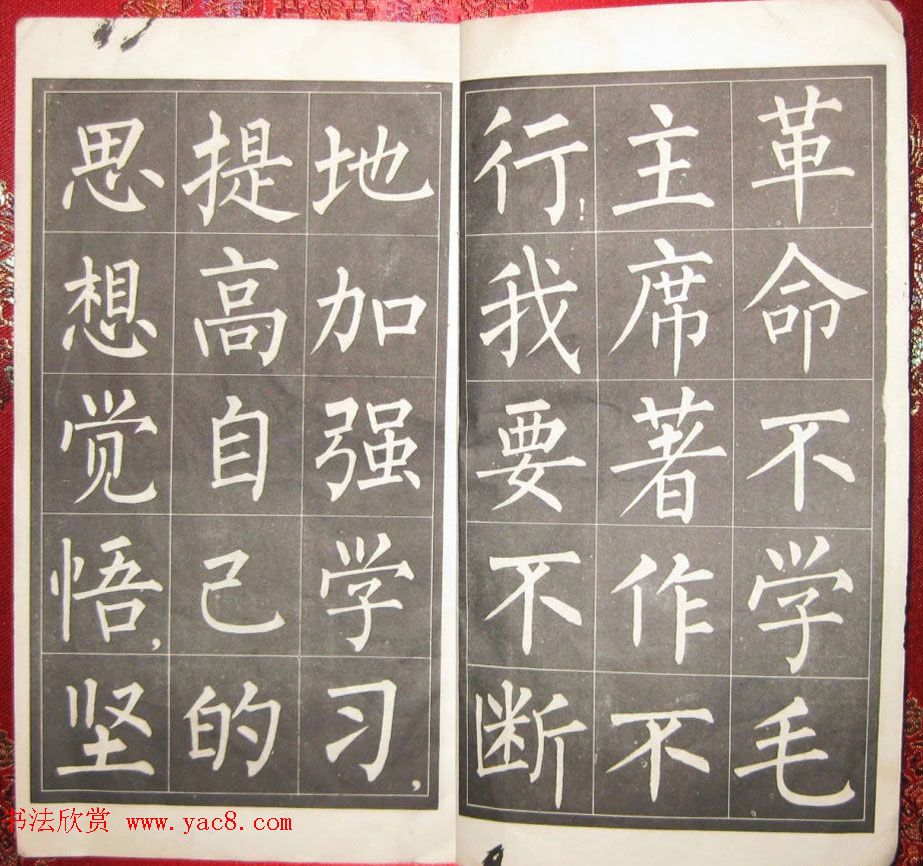 革命不学毛
主席著作不
行！我要不断
地加强学习，
提高自己的
思想觉悟，坚
书法欣赏 www.yac8.com